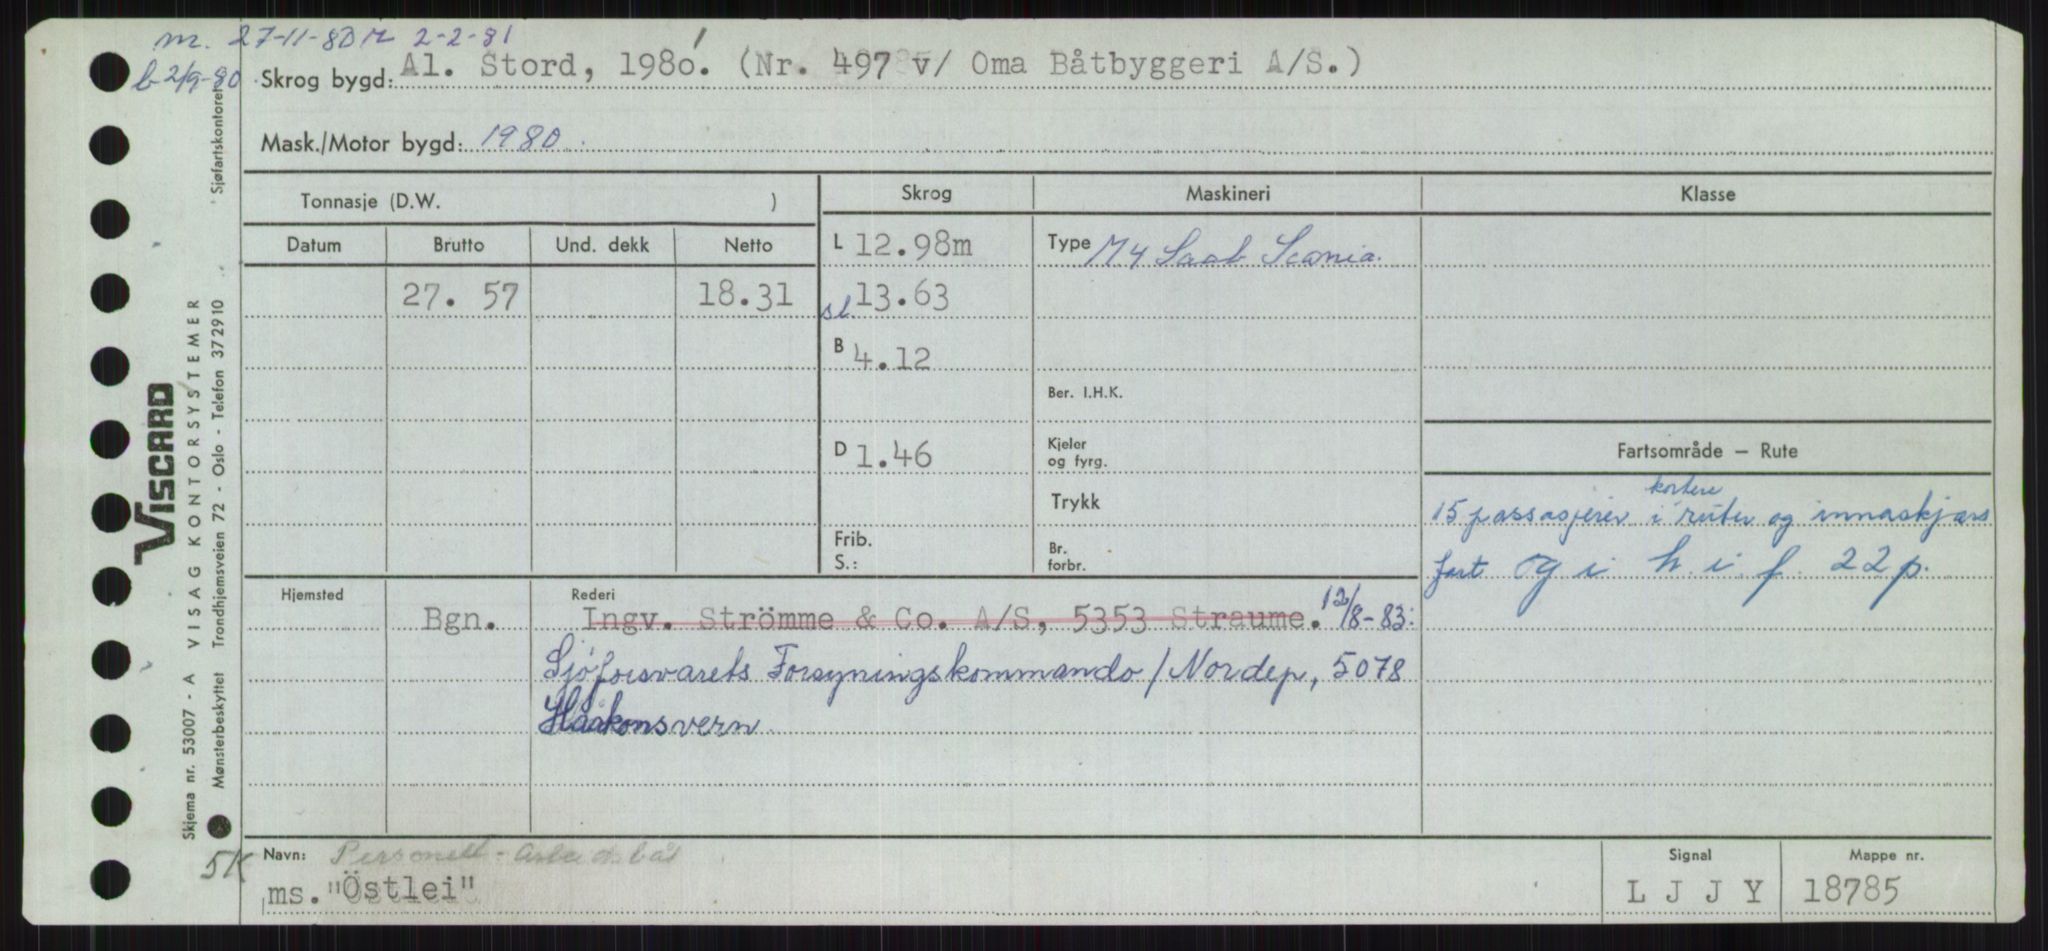 m. 27-11-80 M 2-2-81
b-2/9-80.
Skrog bygd: Al. Stord, 1980. (Nr. 497 v/ Oma Båtbyggeri A/S.)
Mask./Motor bygd: 1980.
Tonnasje (D.W. )
Skrog
Maskineri
Klasse
Datum Brutto Und. dekk Netto
27. 57 18.31
L 12.98m
sl 13.63
B 4.12
D 1.46
Frib.
S.:
Type M4 Saab Scania.
Ber. I.H.K.
Kjeler
og fyrg.
Trykk
Br.
forbr.
Fartsområde — Rute
kortere
15 passasjerer i ruter og innaskjærs
fart og i h. i. f. 22 p.
Hjemsted Rederi
Bgn. Ingv. Strömme & Co. A/S, 5353 Straume. 12/8-83:
Sjöforsvarets Forsyningskommando/Nordep, 5078
Håakonsvern.
Navn: Personell-arbeidsbåt
5K
ms. "Östlei"
Signal
L J J Y
Mappe nr.
18785
VISCARD
Skjema nr. 53007 - A VISAG KONTORSYSTEMER
Mønsterbeskyttet Trondhjemsveien 72 - Oslo - Telefon 372910 Sjøfartskontoret